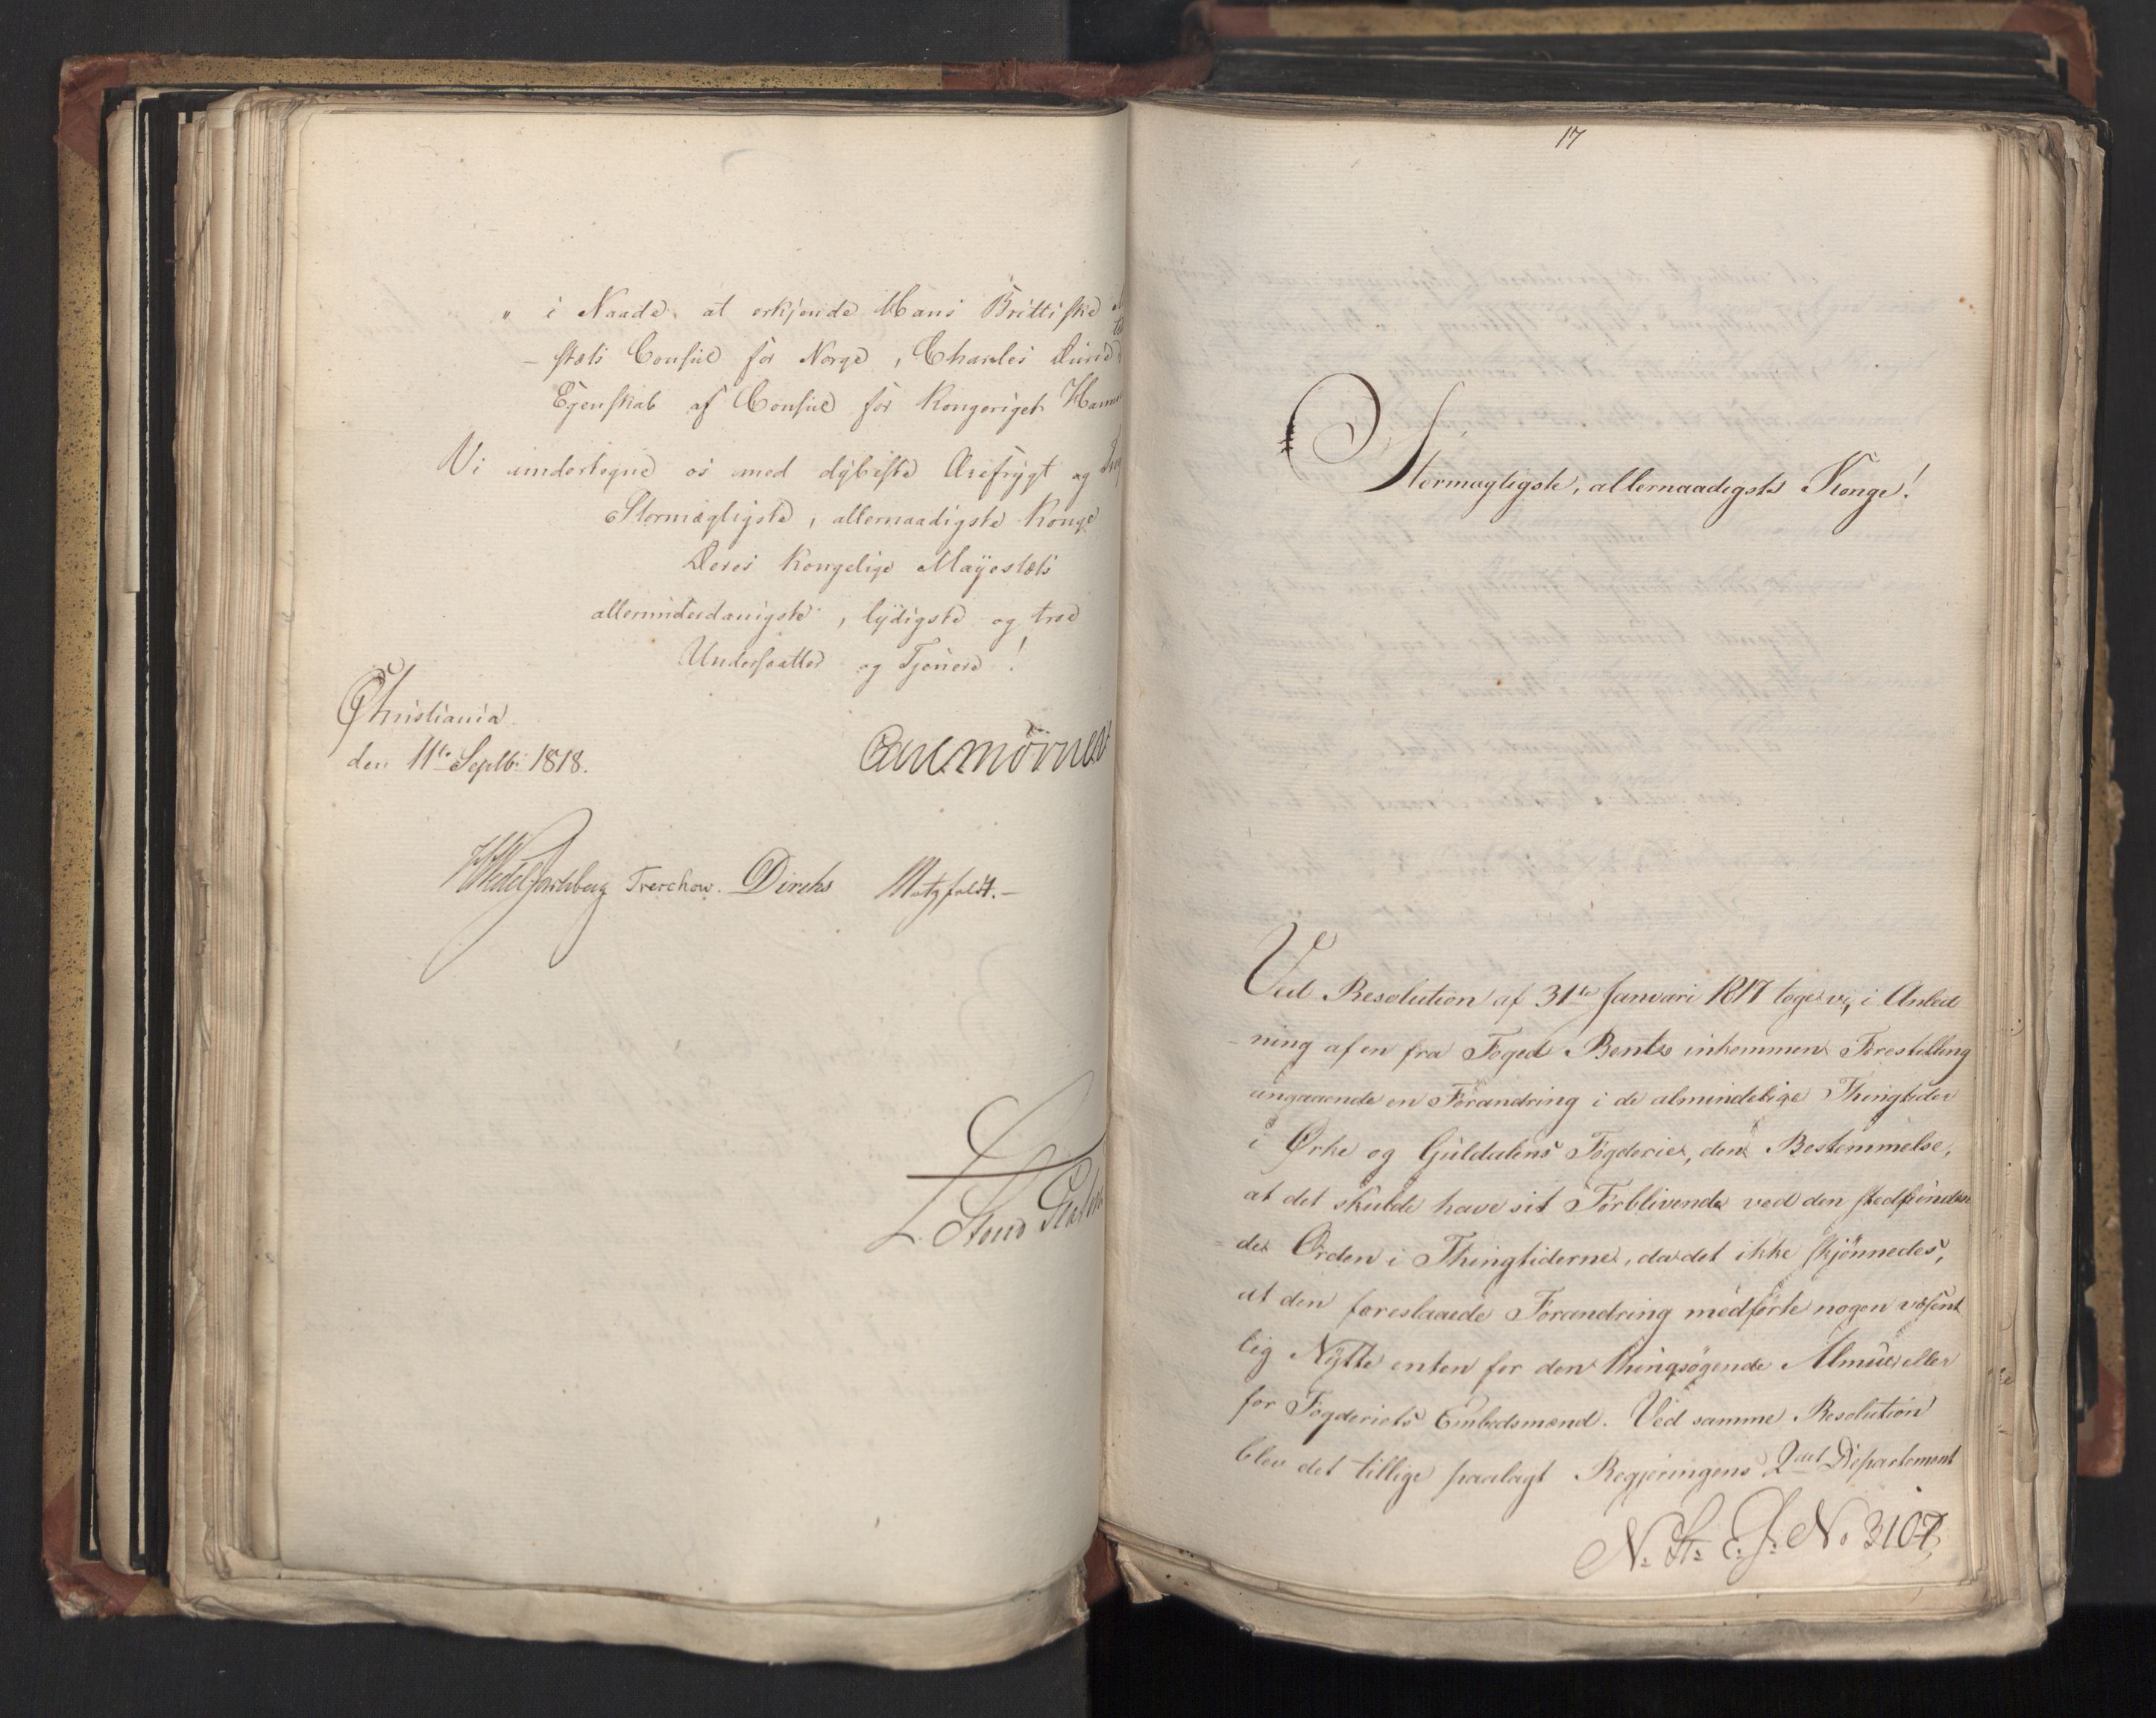 „ i Naade at erkjende Hans Brittiske
- stæts Consul for Norge, Charles
Egenskab af Consul for Kongeriget
Vi undertegne os med dybeste Ærefrygt og
Stormægtigste, allernaadigste Konge
Deres Kongelige Mayestæts
allerunderdanigste, lydigste og troe
Undersaatter og Tjenere!
Christiania
den 11te Septbr 1818.
Carl Mörner
HWedel Jarlsberg Treschow. Diriks Motzfeldt.-
L. Stoud Platou
17
Stormægtigste, allernaadigste Konge!
Ved Resolution af 31te Januari 1817 toge vi, i Anled
-ning af en fra Foged Bentz inkommen Forestilling
angaaende en Forandring i de almindelige Thingtider
i Ørke og Guldalens Fogderie, den Bestemmelse,
at det skulde have sit Forblivende ved den stedfinden
-de Orden i Thingtiderne, da det ikke skjönnedes,
at den foreslaaede Forandring medförte nogen væsent
lig Nytte enten for den thingsøgende Almue eller
for Fogderiets Embedsmænd. Ved samme Resolution
blev det tillige paalagt Regjeringens 2det Departement
N. St. E. J. No 3107